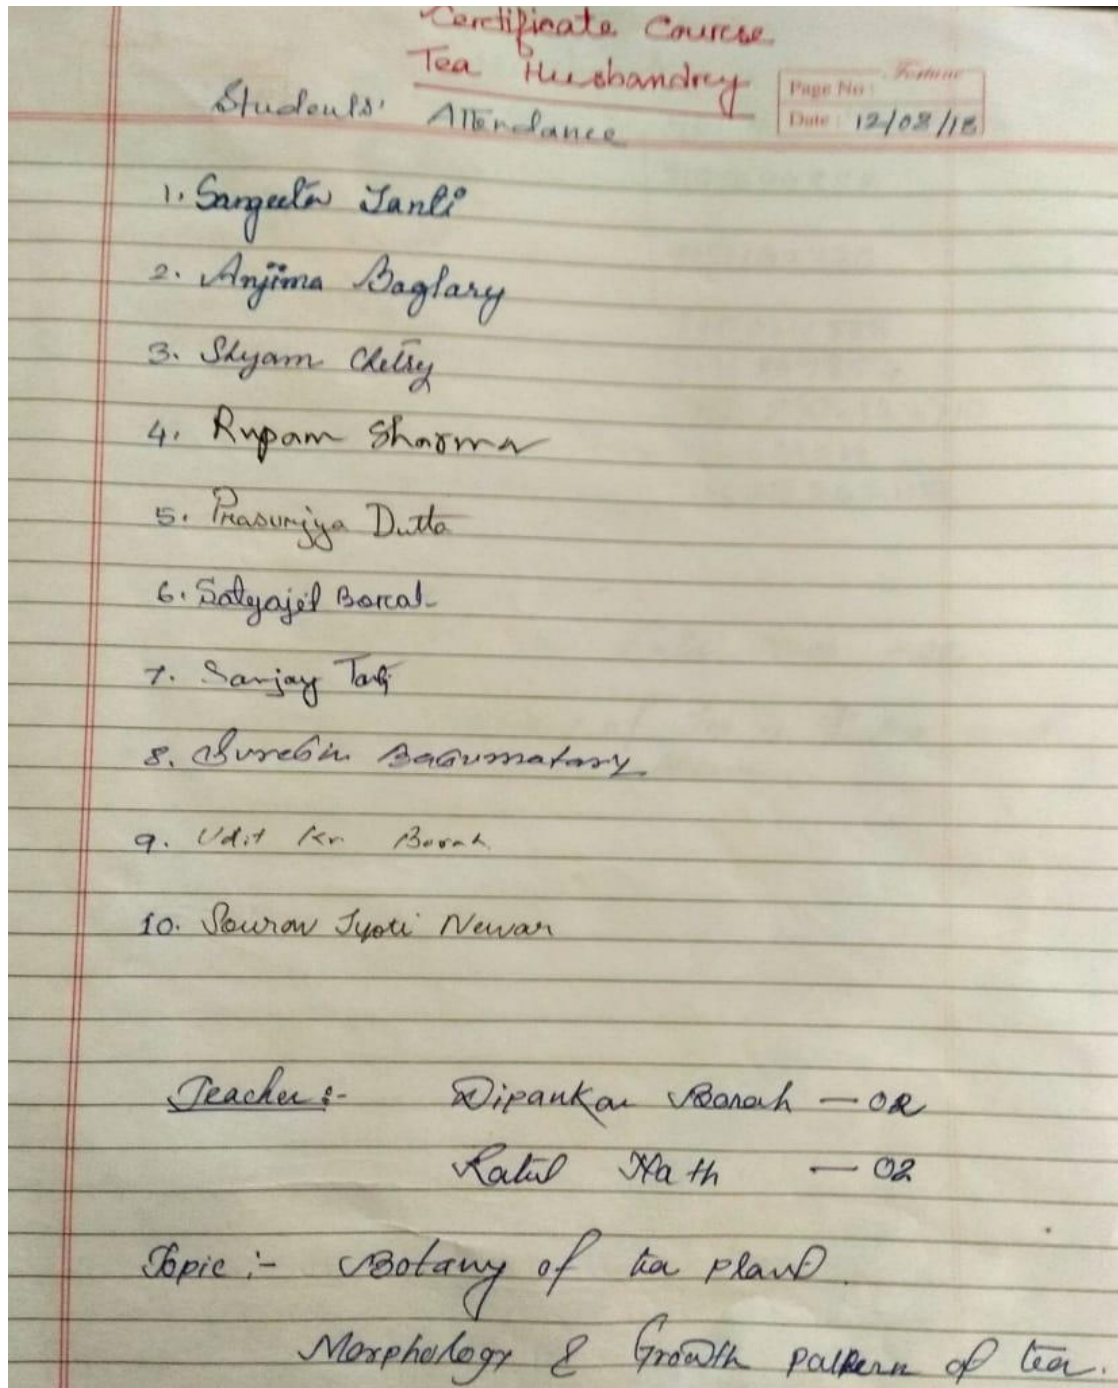 Certificate Course
Tea Husbandry
Fortune
Page No :
Students' Attendance
Date : 12/08/18
1. Sangeeta Tanti
2. Anjima Baglary
3. Shyam Chetry
4. Rupam Sharma
5. Prasurjya Dutta
6. Satyajit Borah
7. Sanjay
8. Basumatary
9. Udit Kr. Borah
10. Sourav Jyoti Newar
Teacher :- Dipankar Borah — 02
Ratul Nath — 02
Topic :- Botany of tea plant.
Morphology & Growth pattern of tea.